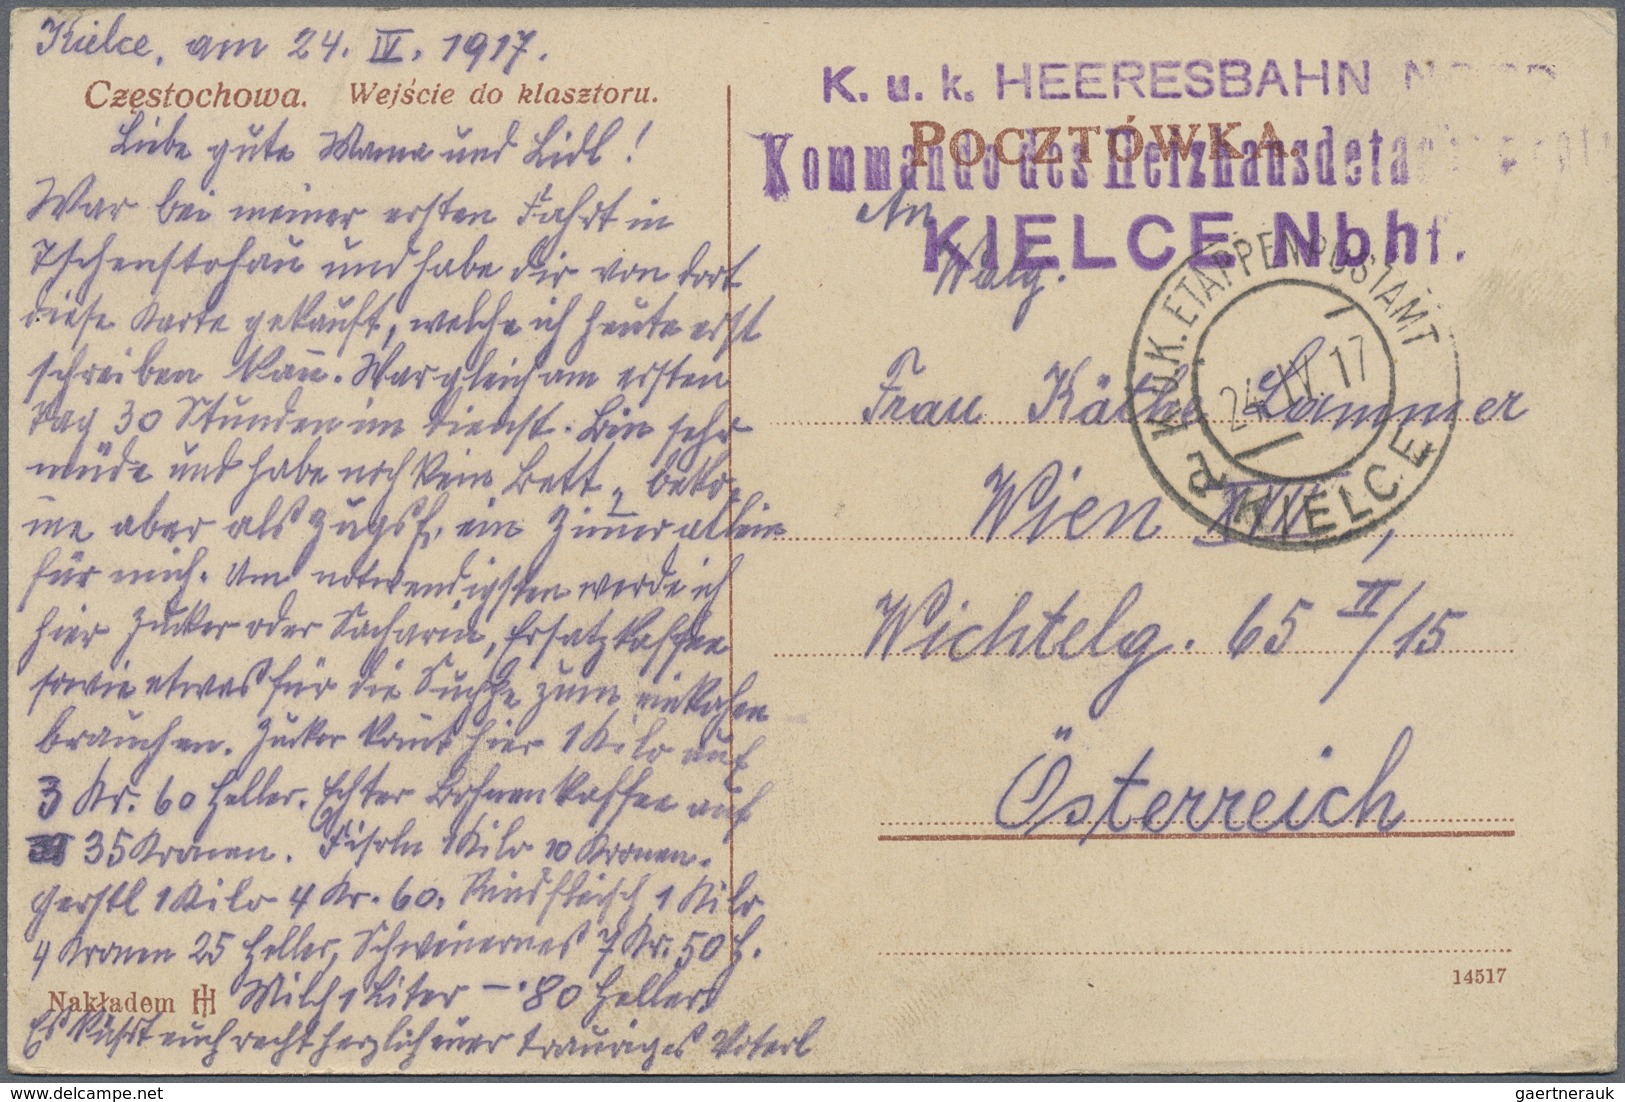 Kielce, am 24. IV. 1917.
Częstochowa. Wejście do klasztoru.
Liebe gute Mama und Lidl!
War bei meiner ersten Fahrt in
Tschenstohau und habe dir von dort
diese Karte gekauft, welche ich heute erst
schreiben kann. War gleich am ersten
Tag 30 Stunden im Dienst. Bin sehr
müde und habe noch kein Bett, beko-
me aber als Zugsf. ein Zimmer allein
für mich. Am notwendigsten werde ich
hier Zucker oder Sacharin, Ersatzkaffee
sowie etwas für die Suppe zum einkochen
brauchen. Zucker komt hier 1 Kilo auf
3 Kr. 60 Heller. Echter Bohnenkaffee auf
35 Kronen. Fisoln 1 Kilo 10 Kronen.
Gerstl 1 Kilo 4 Kr. 60. Rindfleisch 1 Kilo
4 Kronen 25 Heller, Schweinernes 7 Kr. 50 H.
Nakładem
Milch 1 Liter —·80 Heller.
Es küsst euch recht herzlich euer trauriges Voterl
K. u. k. HEERESBAHN NORD
POCZTÓWKA.
Kommando des Heizhausdeta
KIELCE Nbhf.
An
Wolg.
K.U.K. ETAPPENPOSTAMT
24 IV 17
KIELCE
a
Frau Käthe Lammer
Wien XVII,
Wichtelg. 65 II/15
Österreich
14517
gaertnerauk @ delcampe.net